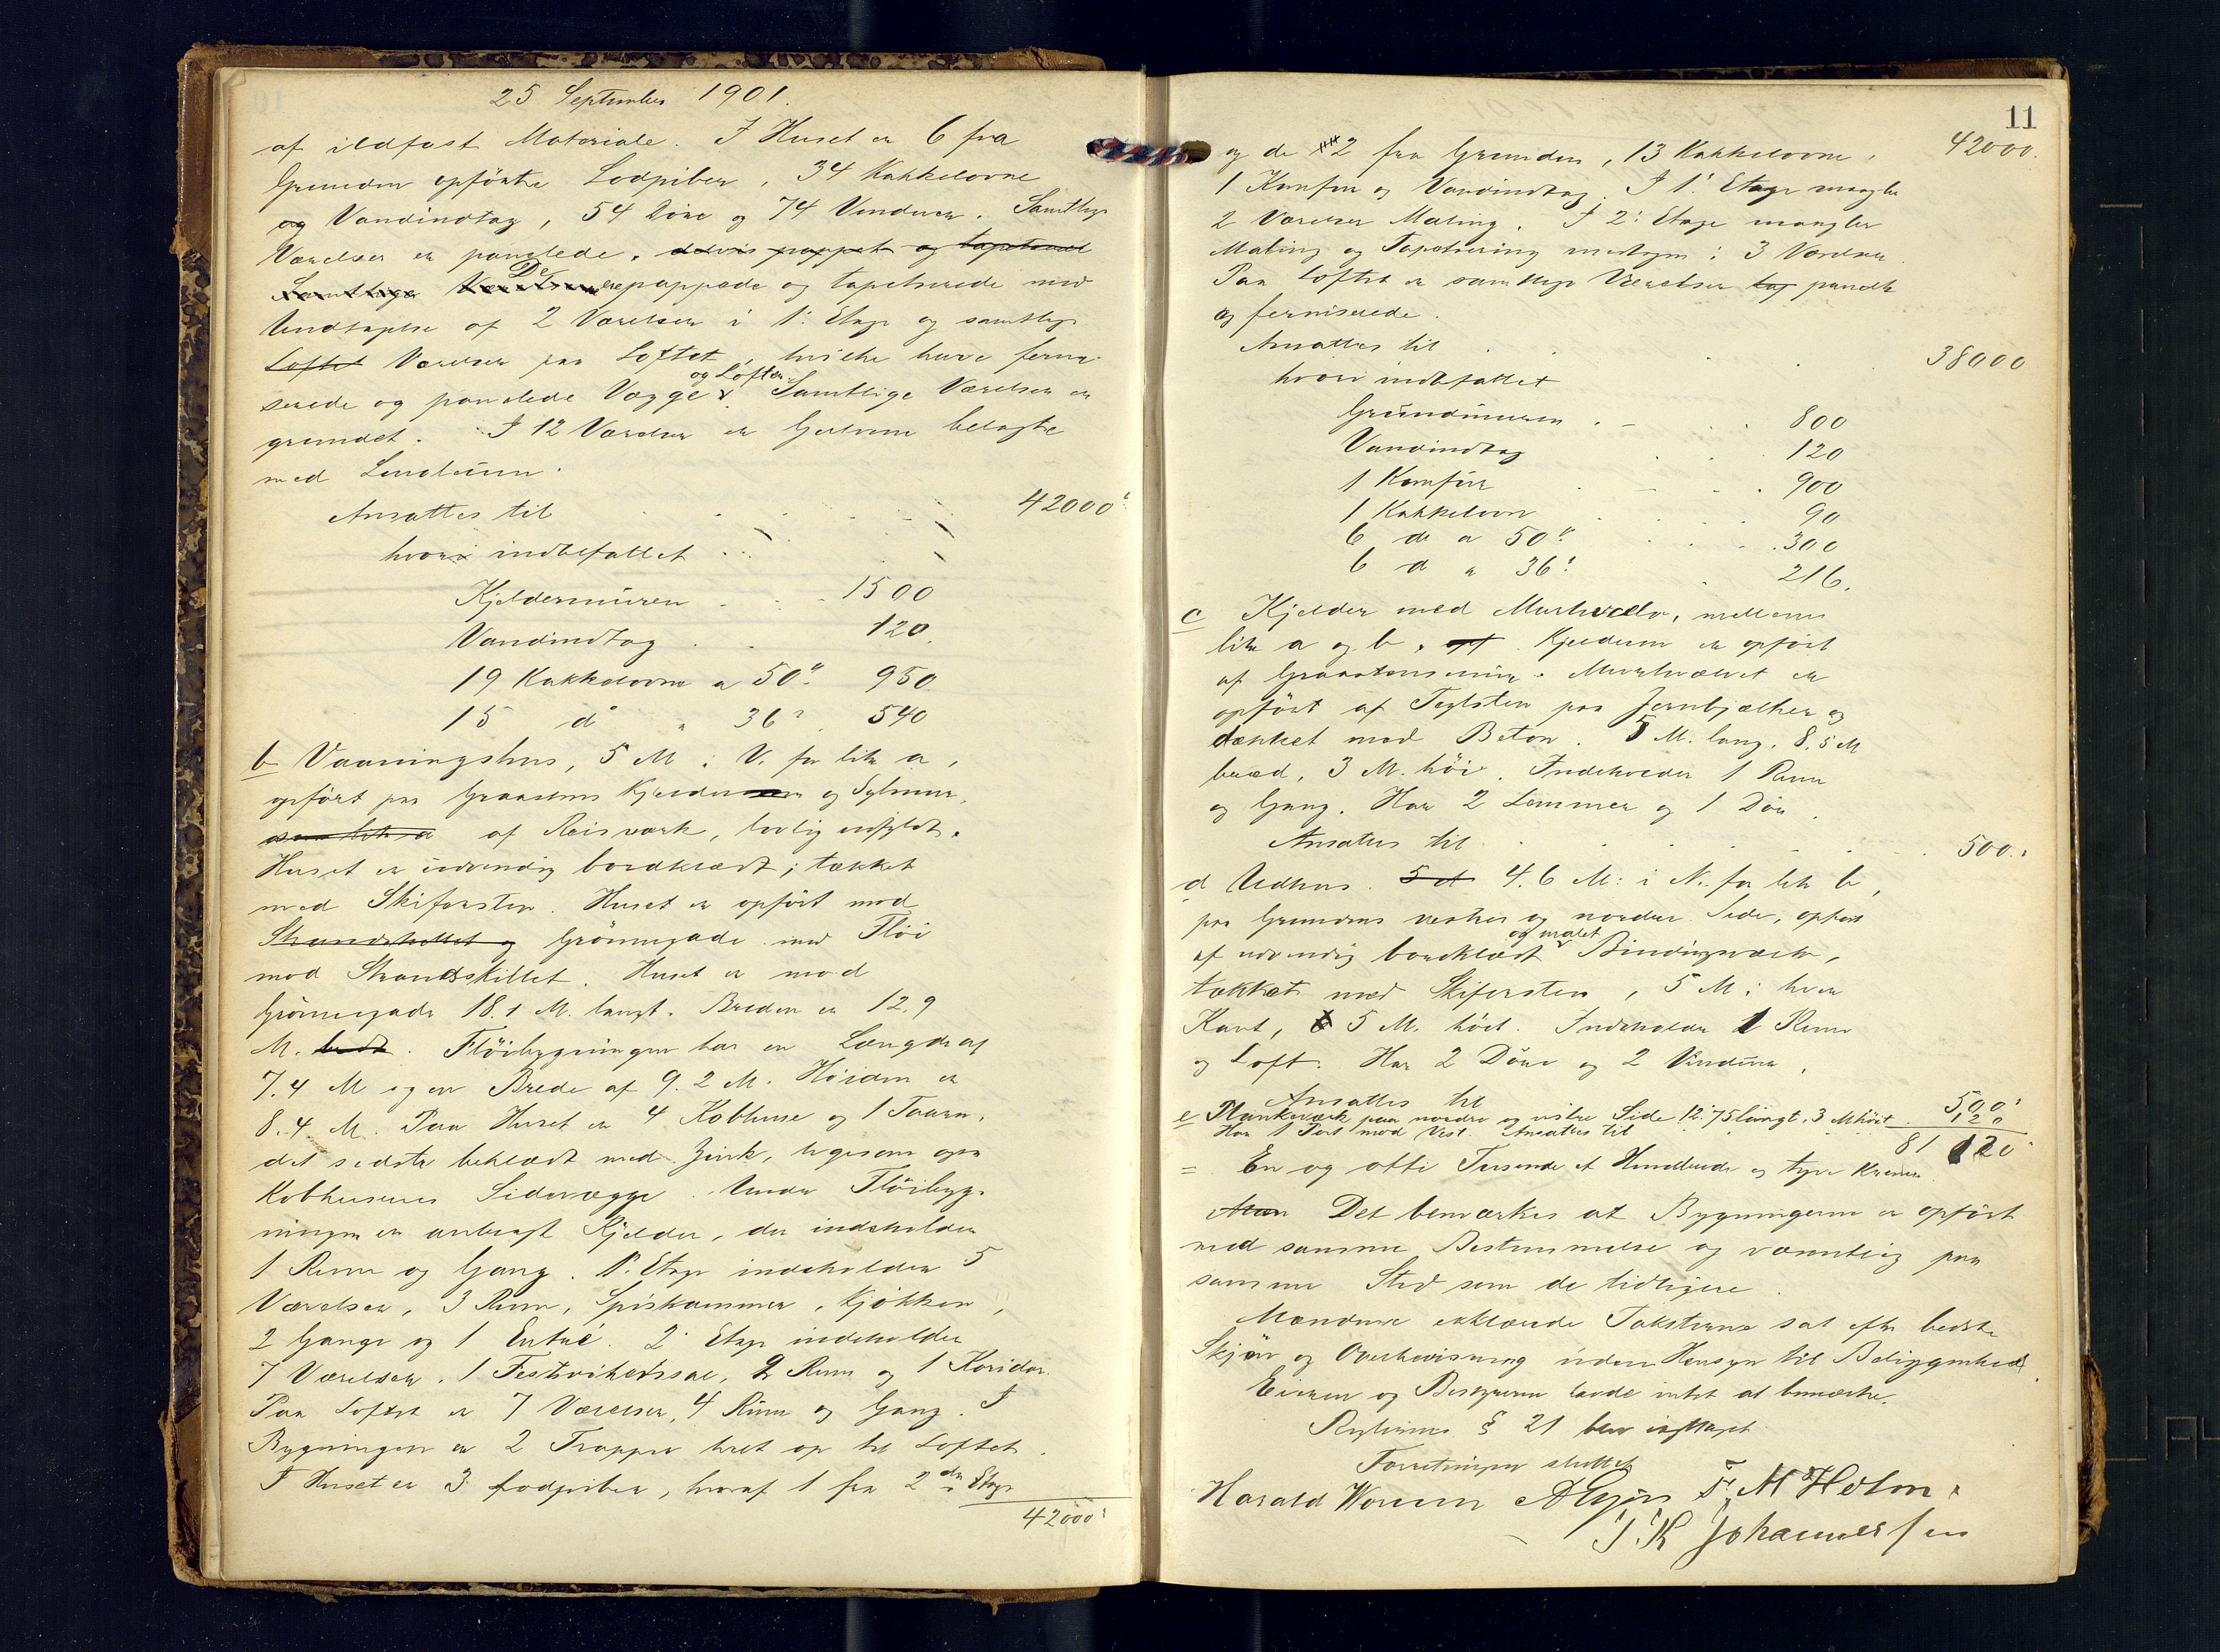 25 September 1901.
af ildfast Materiale. I Huset er 6 fra
Grunden opförte Lodpiber, 34 Kakkelovne
og Vandindtag, 54 Döre og 74 Vinduer. Samtlige
Værelser er panelede. delvis pappet og tapetseret
Samtlige Værelser De er pappede og tapetserede med
Undtagelse af 2 Værelser i 1ᵉ Etage og samtlige
Loftet Værelser paa Loftet, hvilke have ferni-
serede og panelede Vægge og Lofter. Samtlige Værelser er
grundet. I 12 Værelser er Gulvene belagte
med Linoleum.
Ansattes til 42000
hvori indbefattet
Kjeldermuren 1500
Vandindtag 120.
19 Kakkelovne a 50 950
15 do " 36 540
b Vaaningshus, 5 M i V. for litr a,
opfört paa Graastens Kjeldermur og Sylmur,
som litr. a af Reisværk, lovlig udfyldt.
Huset er udvendig bordklædt, tækket
med Skifersten. Huset er opfört mod
Strandskillet og Grönnegade med Flöi
mod Strandskillet. Huset er mod
Grönnegade 18.1 M. langt. Breden er 12.9
M. bredt. Flöibygningen har en Længde af
7.4 M og en Brede af 9.2 M. Höiden er
8.4 M. Paa Huset er 4 Kobhuse og 1 Taarn,
det sidste beklædt med Zink, ligesom ogsaa
Kobhusenes Sidevægge. Under Flöibyg-
ningen er anbragt Kjelder, der indeholder
1 Rum og Gang. 1ᵉ Etage indeholder 5
Værelser, 3 Rum, Spiskammer, Kjökken,
2 Gange og 1 Entré. 2 Etage indeholder
7 Værelser, 1 Festivitetssal, 2 Rum og 1 Koridor.
Paa Loftet er 7 Værelser, 4 Rum og Gang. I
Bygningen er 2 Trapper helt op til Loftet.
I Huset er 3 Lodpiber, hvoraf 1 fra 2den Etage
42000
11
og de 2 fra Grunden, 13 Kakkelovne, 42000.
1 Komfur og Vandindtag. I 1ᵉ Etage mangler
2 Værelser Maling. I 2ᵉ Etage mangler
Maling og Tapetsering i 3 Værelser.
Paa Loftet er samtlige Værelser tap panelte
ogferniserede.
Ansattes til 38000
hvori indbefattet
Grundmuren 800
Vandindtag 120
1 Komfur 900
1 Kakkelovn 90
6 do a 50 300
6 d a 36 216.
c Kjelder med Murhvælv, mellem
litr a og b, af Kjelderen er opfört
af Graastensmur. Murhvælvet er
opfört af Teglsten paa Jernbjælker og
dækket med Beton. 5 M. lang, 8,5 M
bred, 3 M. höi. Indeholder 1 Rum
og Gang. Har 2 Lemmer og 1 Dör.
Ansattes til 500.
d Udhus. 5 d 4.6 M: i N. for litr b,
paa Grundens vestre og nordre Side, opfört
af udvendig bordklædt og malet Bindingsværk,
tækket med Skifersten, 5 M i hver
Kant, 5 M. höit. Indeholder 1 Rum
og Loft. Har 2 Döre og 2 Vinduer.
Ansattes til 500
e Plankeværk paa nordre og vestre Side 12.75 langt, 3 M höit
Har 1 Port mod Vest. Ansattes til 120
81 120
= En og otti Tusende et Hundrede og tyve Kroner
Man Det bemærkes at Bygningerne er opfört
med samme Bestemmelse og væsentlig paa
samme Sted som de tidligere.
Mændene erklærede Taksterne sat efter bedste
Skjön og Overbevisning uden Hensyn til Beliggenhed
Eieren og Bestyreren havde intet at bemærke.
§ 21 blev iagttaget
Forretningen sluttet
Harald F. M Holm
J. K Johannessen